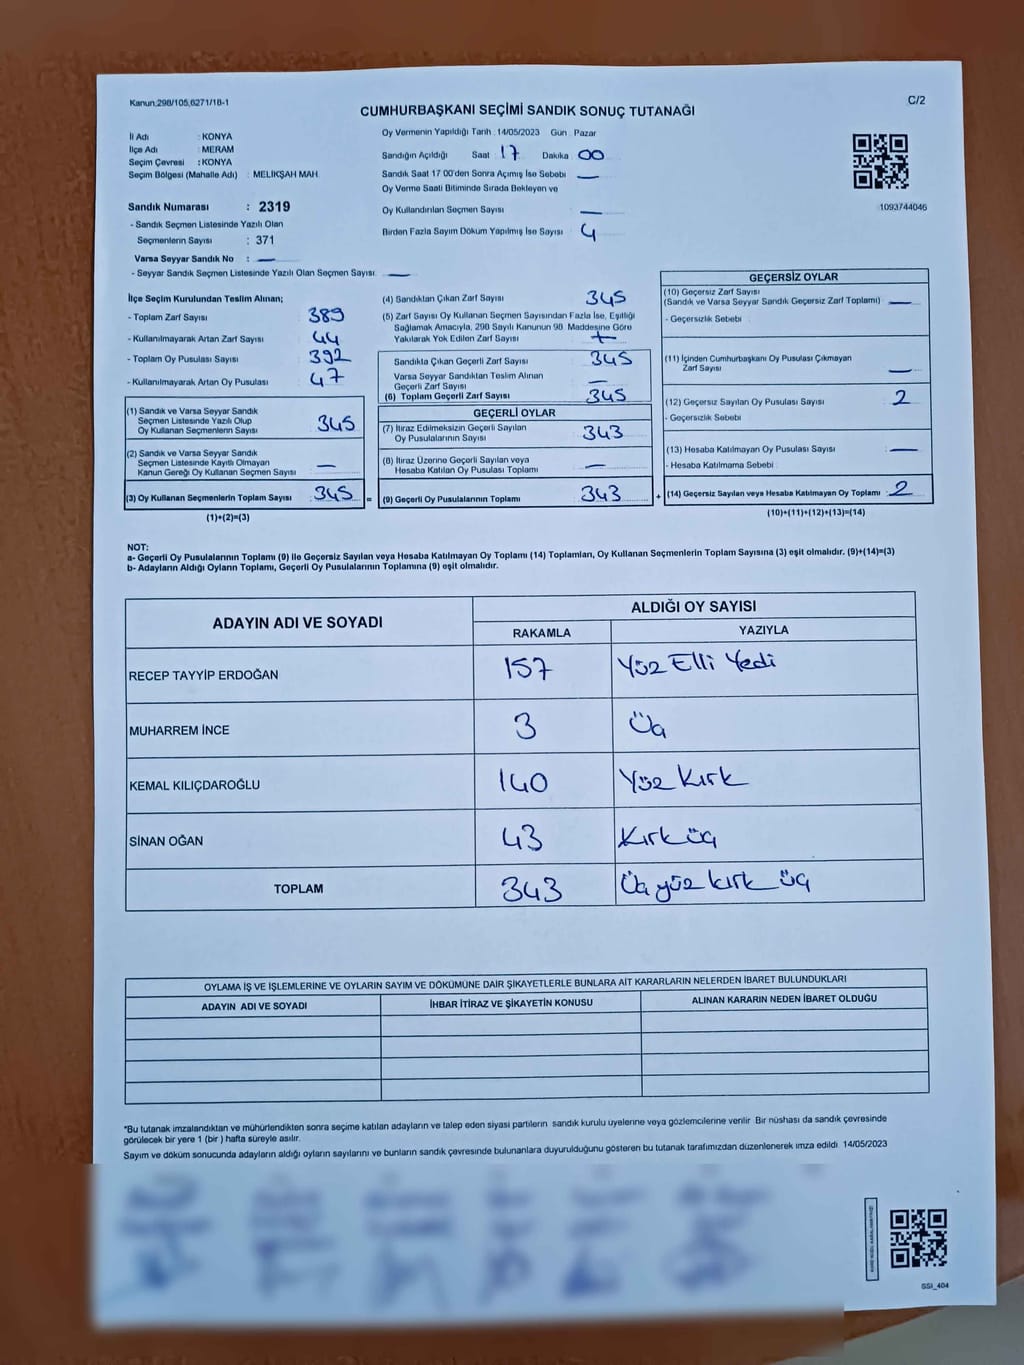 Kanun,298/105,6271/18-1
C/2
CUMHURBAŞKANI SEÇİMİ SANDIK SONUÇ TUTANAĞI
İl Adı : KONYA
İlçe Adı : MERAM
Seçim Çevresi : KONYA
Seçim Bölgesi (Mahalle Adı) : MELİKŞAH MAH.
Sandık Numarası : 2319
- Sandık Seçmen Listesinde Yazılı Olan
Seçmenlerin Sayısı : 371
Varsa Seyyar Sandık No : —
- Seyyar Sandık Seçmen Listesinde Yazılı Olan Seçmen Sayısı: —
Oy Vermenin Yapıldığı Tarih : 14/05/2023 Gün : Pazar
Sandığın Açıldığı Saat : 17 Dakika 00
Sandık Saat 17 00'den Sonra Açımış İse Sebebi —
Oy Verme Saati Bitiminde Sırada Bekleyen ve
Oy Kullandırılan Seçmen Sayısı —
Birden Fazla Sayım Döküm Yapılmış İse Sayısı 4
1093744046
İlçe Seçim Kurulundan Teslim Alınan;
- Toplam Zarf Sayısı 389
- Kullanılmayarak Artan Zarf Sayısı 44
- Toplam Oy Pusulası Sayısı 392
- Kullanılmayarak Artan Oy Pusulası 47
(1) Sandık ve Varsa Seyyar Sandık
Seçmen Listesinde Yazılı Olup
Oy Kullanan Seçmenlerin Sayısı 345
(2) Sandık ve Varsa Seyyar Sandık
Seçmen Listesinde Kayıtlı Olmayan
Kanun Gereği Oy Kullanan Seçmen Sayısı —
(3) Oy Kullanan Seçmenlerin Toplam Sayısı 345 =
(1)+(2)=(3)
(4) Sandıktan Çıkan Zarf Sayısı 345
(5) Zarf Sayısı Oy Kullanan Seçmen Sayısından Fazla İse, Eşitliği
Sağlamak Amacıyla, 298 Sayılı Kanunun 98. Maddesine Göre
Yakılarak Yok Edilen Zarf Sayısı
Sandıkla Çıkan Geçerli Zarf Sayısı 345
Varsa Seyyar Sandıktan Teslim Alınan
Geçerli Zarf Sayısı —
(6) Toplam Geçerli Zarf Sayısı 345
GEÇERLİ OYLAR
(7) İtiraz Edilmeksizin Geçerli Sayılan
Oy Pusulalarının Sayısı 343
(8) İtiraz Üzerine Geçerli Sayılan veya
Hesaba Katılan Oy Pusulası Toplamı —
(9) Geçerli Oy Pusulalarının Toplamı 343 +
GEÇERSİZ OYLAR
(10) Geçersiz Zarf Sayısı
(Sandık ve Varsa Seyyar Sandık Geçersiz Zarf Toplamı) —
- Geçersizlik Sebebi
(11) İçinden Cumhurbaşkanı Oy Pusulası Çıkmayan
Zarf Sayısı —
(12) Geçersiz Sayılan Oy Pusulası Sayısı 2
- Geçersizlik Sebebi
(13) Hesaba Katılmayan Oy Pusulası Sayısı —
- Hesaba Katılmama Sebebi
(14) Geçersiz Sayılan veya Hesaba Katılmayan Oy Toplamı 2
(10)+(11)+(12)+(13)=(14)
NOT:
a- Geçerli Oy Pusulalarının Toplamı (9) ile Geçersiz Sayılan veya Hesaba Katılmayan Oy Toplamı (14) Toplamları, Oy Kullanan Seçmenlerin Toplam Sayısına (3) eşit olmalıdır. (9)+(14)=(3)
b- Adayların Aldığı Oyların Toplamı, Geçerli Oy Pusulalarının Toplamına (9) eşit olmalıdır.
ADAYIN ADI VE SOYADI ALDIĞI OY SAYISI
RAKAMLA YAZIYLA
RECEP TAYYİP ERDOĞAN 157 Yüz Elli Yedi
MUHARREM İNCE 3 Üç
KEMAL KILIÇDAROĞLU 140 Yüz Kırk
SİNAN OĞAN 43 Kırk üç
TOPLAM 343 Üç yüz kırk üç
OYLAMA İŞ VE İŞLEMLERİNE VE OYLARIN SAYIM VE DÖKÜMÜNE DAİR ŞİKAYETLERLE BUNLARA AİT KARARLARIN NELERDEN İBARET BULUNDUKLARI
ADAYIN ADI VE SOYADI İHBAR İTİRAZ VE ŞİKAYETİN KONUSU ALINAN KARARIN NEDEN İBARET OLDUĞU
*Bu tutanak imzalandıktan ve mühürlendikten sonra seçime katılan adayların ve talep eden siyasi partilerin sandık kurulu üyelerine veya gözlemcilerine verilir Bir nüshası da sandık çevresinde
görülecek bir yere 1 (bir ) hafta süreyle asılır.
Sayım ve döküm sonucunda adayların aldığı oyların sayılarını ve bunların sandık çevresinde bulunanlara duyurulduğunu gösteren bu tutanak tarafımızdan düzenlenerek imza edildi 14/05/2023
SSI_404